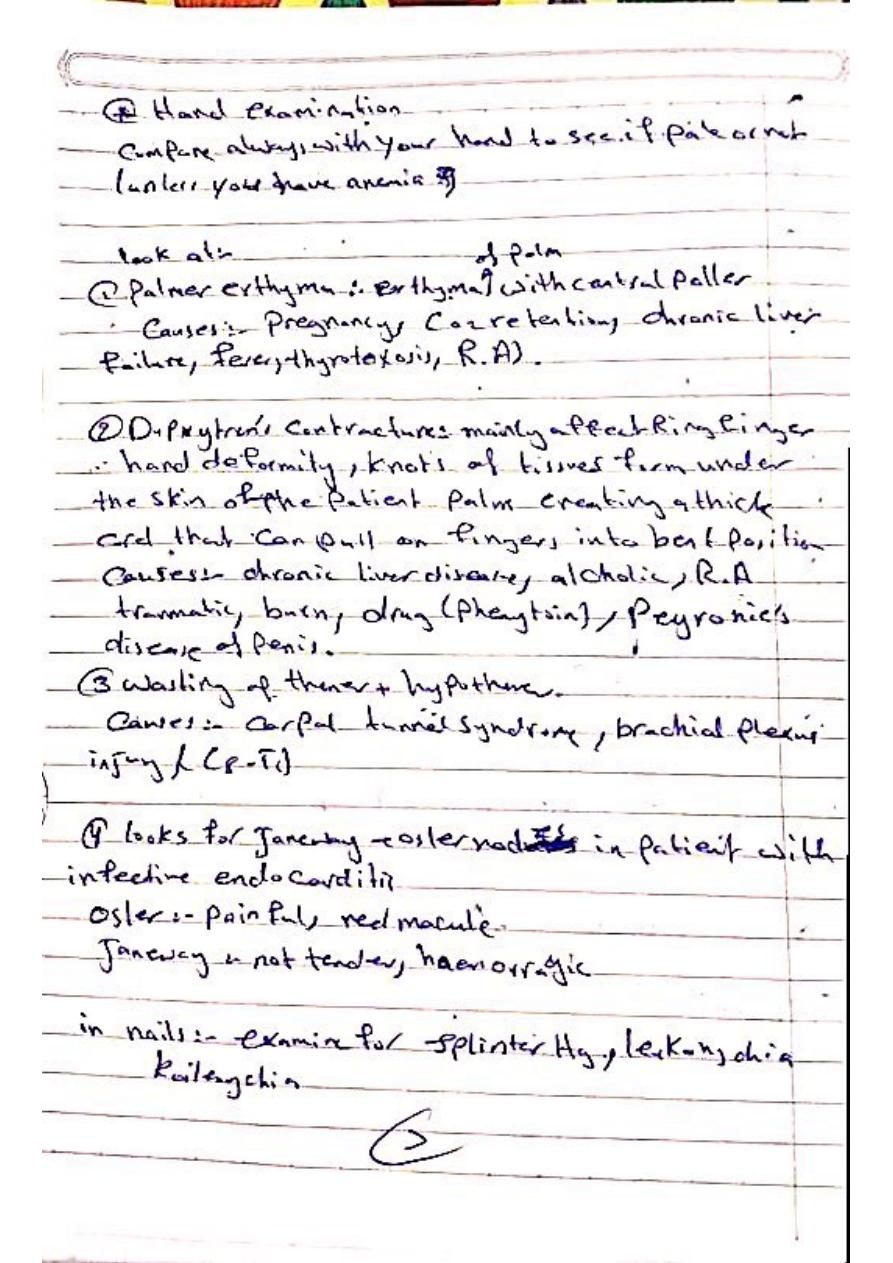 * Hand examination
Compare always with your hand to see if pale or not
(unless you have anemia
look at:-
① Palmer erthyma :- erthyma of palm with central paller
Causes:- Pregnancy, Co2 retention, chronic liver
failure, fever, thyrotoxosis, R.A).
② Dupuytren's Contracture: mainly affect Ring finger
:- hand deformity, knots of tissues form under
the skin of the patient palm creating a thick
cord that can pull on fingers into bent position
Causes:- chronic liver disease, alcholic, R.A
traumatic, burn, drug (phenytoin), Peyronie's
disease of Penis.
③ Wasting of thener + hypothener.
Causes:- Carpal tunnel syndrome, brachial plexus
injury (C8-T1)
④ looks for Janeway - osler nodes in patient with
infective endocarditis
Osler:- painful, red macule.
Janeway :- not tender, haemorragic
in nails:- examine for splinter Hg, leukonychia
Koilonychia